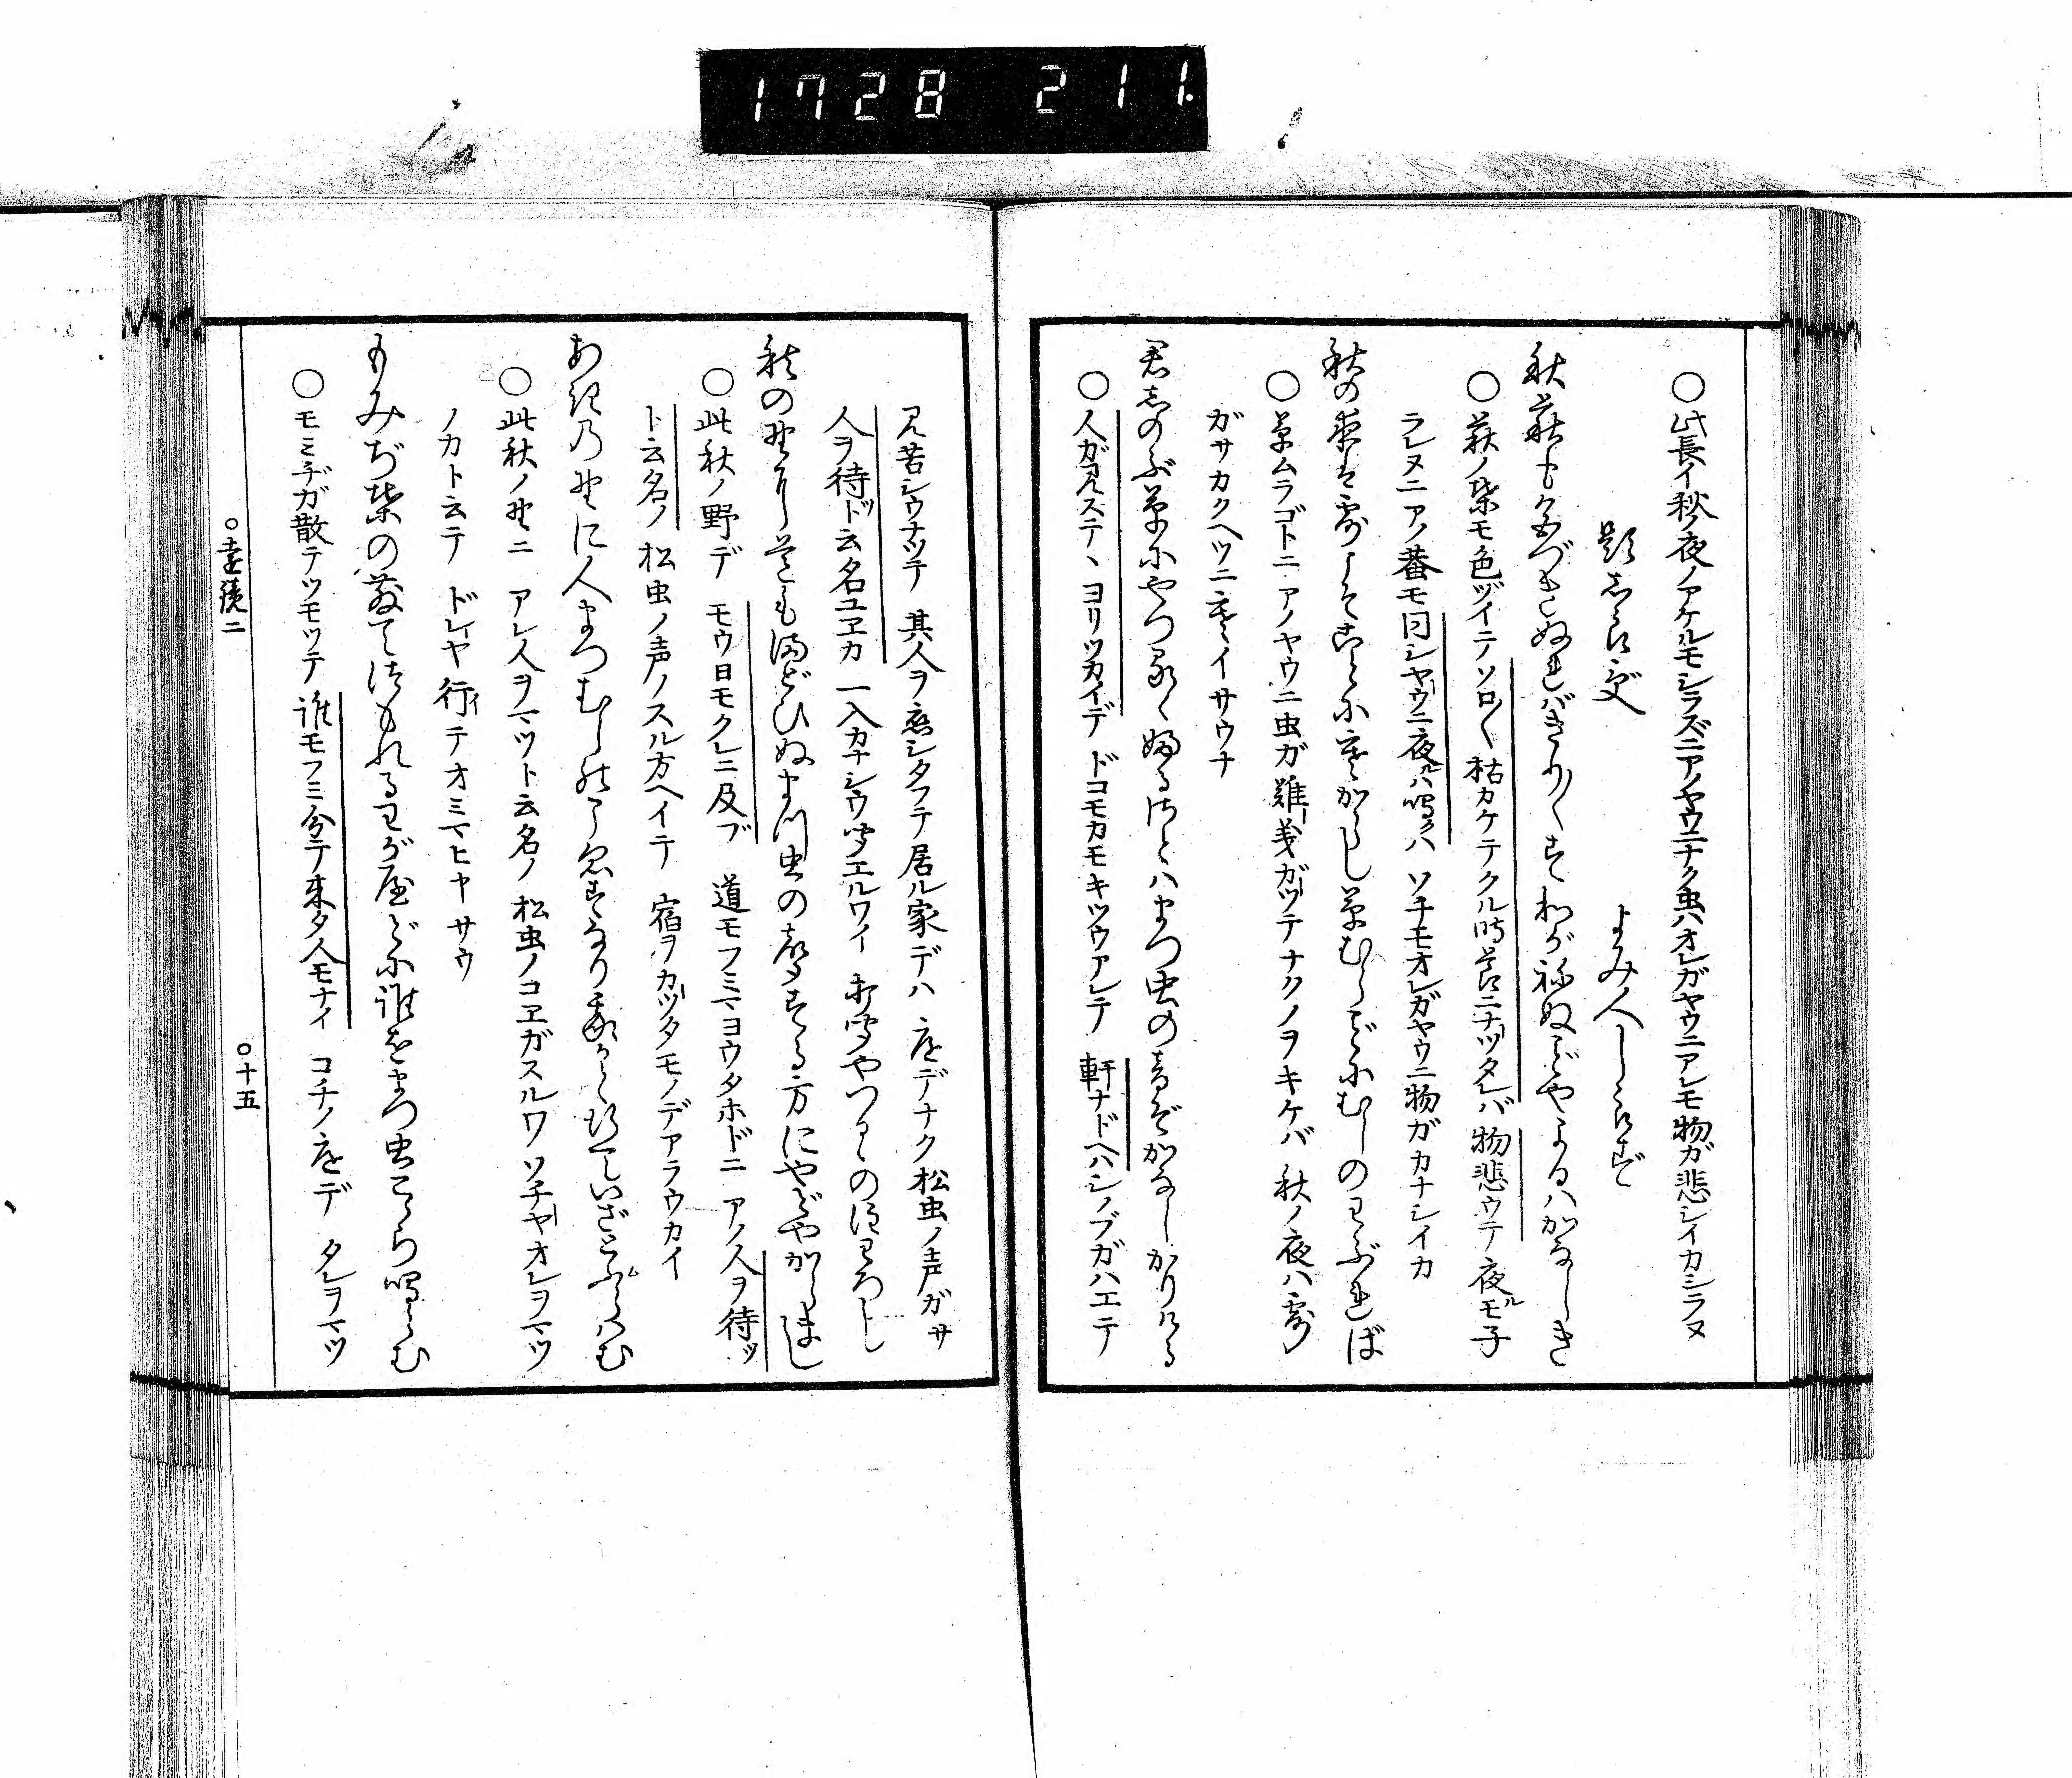 1728 211
○此長イ秋ノ夜ノアケルモシラズニアノヤウニナク虫ハオレガヤウニアレモ物ガ悲シイカシラヌ
題しらず　よみ人しらず
秋萩も色づきぬればきり〴〵すわがねぬごとやよるはかなしき
○萩ノ葉モ色ヅイテソロ〳〵枯カケテクル時節ニナツタレバ物悲ウテ夜ル モ子
ラレヌニアノ蛬モ同シヤウニ夜ルハ鳴クハソチモオレガヤウニ物ガカナシイカ
秋の夜は露こそことにさむからし草むらごとにむしのわぶれば
○草ムラゴトニアノヤウニ虫ガ難義ガツテナクノヲキケバ秋ノ夜ハ露
ガサカクベツニ寒イサウナ
君しのぶ草にやつるゝ故るさとはまつ虫の音ぞかなしかりける
○人ガ見ステヽヨリツカイデドコモカモキツウアレテ軒ナドヘハシノブガハエテ
見苦シウナツテ其人ヲ恋シタフテ居ル家デハ庭デナク松虫ノ声ガサ
人ヲ待ツト云名ユヱカ一入カナシウ聞エルワイ
秋の野に道もまどひぬまつ虫の声する方にやどやからまし
○此秋ノ野デモウ日モクレニ及ブ道モフミマヨウタホドニアノ人ヲ待ツ
ト云名ノ松虫ノ声ノスル方ヘイテ宿ヲカツタモノデアラウカイ
あきの野に人まつむしのこゑすなり我かと行ていざとぶらはむ
○此秋ノ野ニアレ人ヲマツト云名ノ松虫ノコヱガスルワソチヤオレヲマツ
ノカト云テドレヤ行イテオミマヒヤサウ
もみぢ葉の散てつもれるわが屋どに誰をまつ虫こゝら鳴らむ
○モミヂガ散テツモツテ誰モフミ分テ来タ人モナイコチノ庭デタレヲマツ
○遠鏡二　○十五